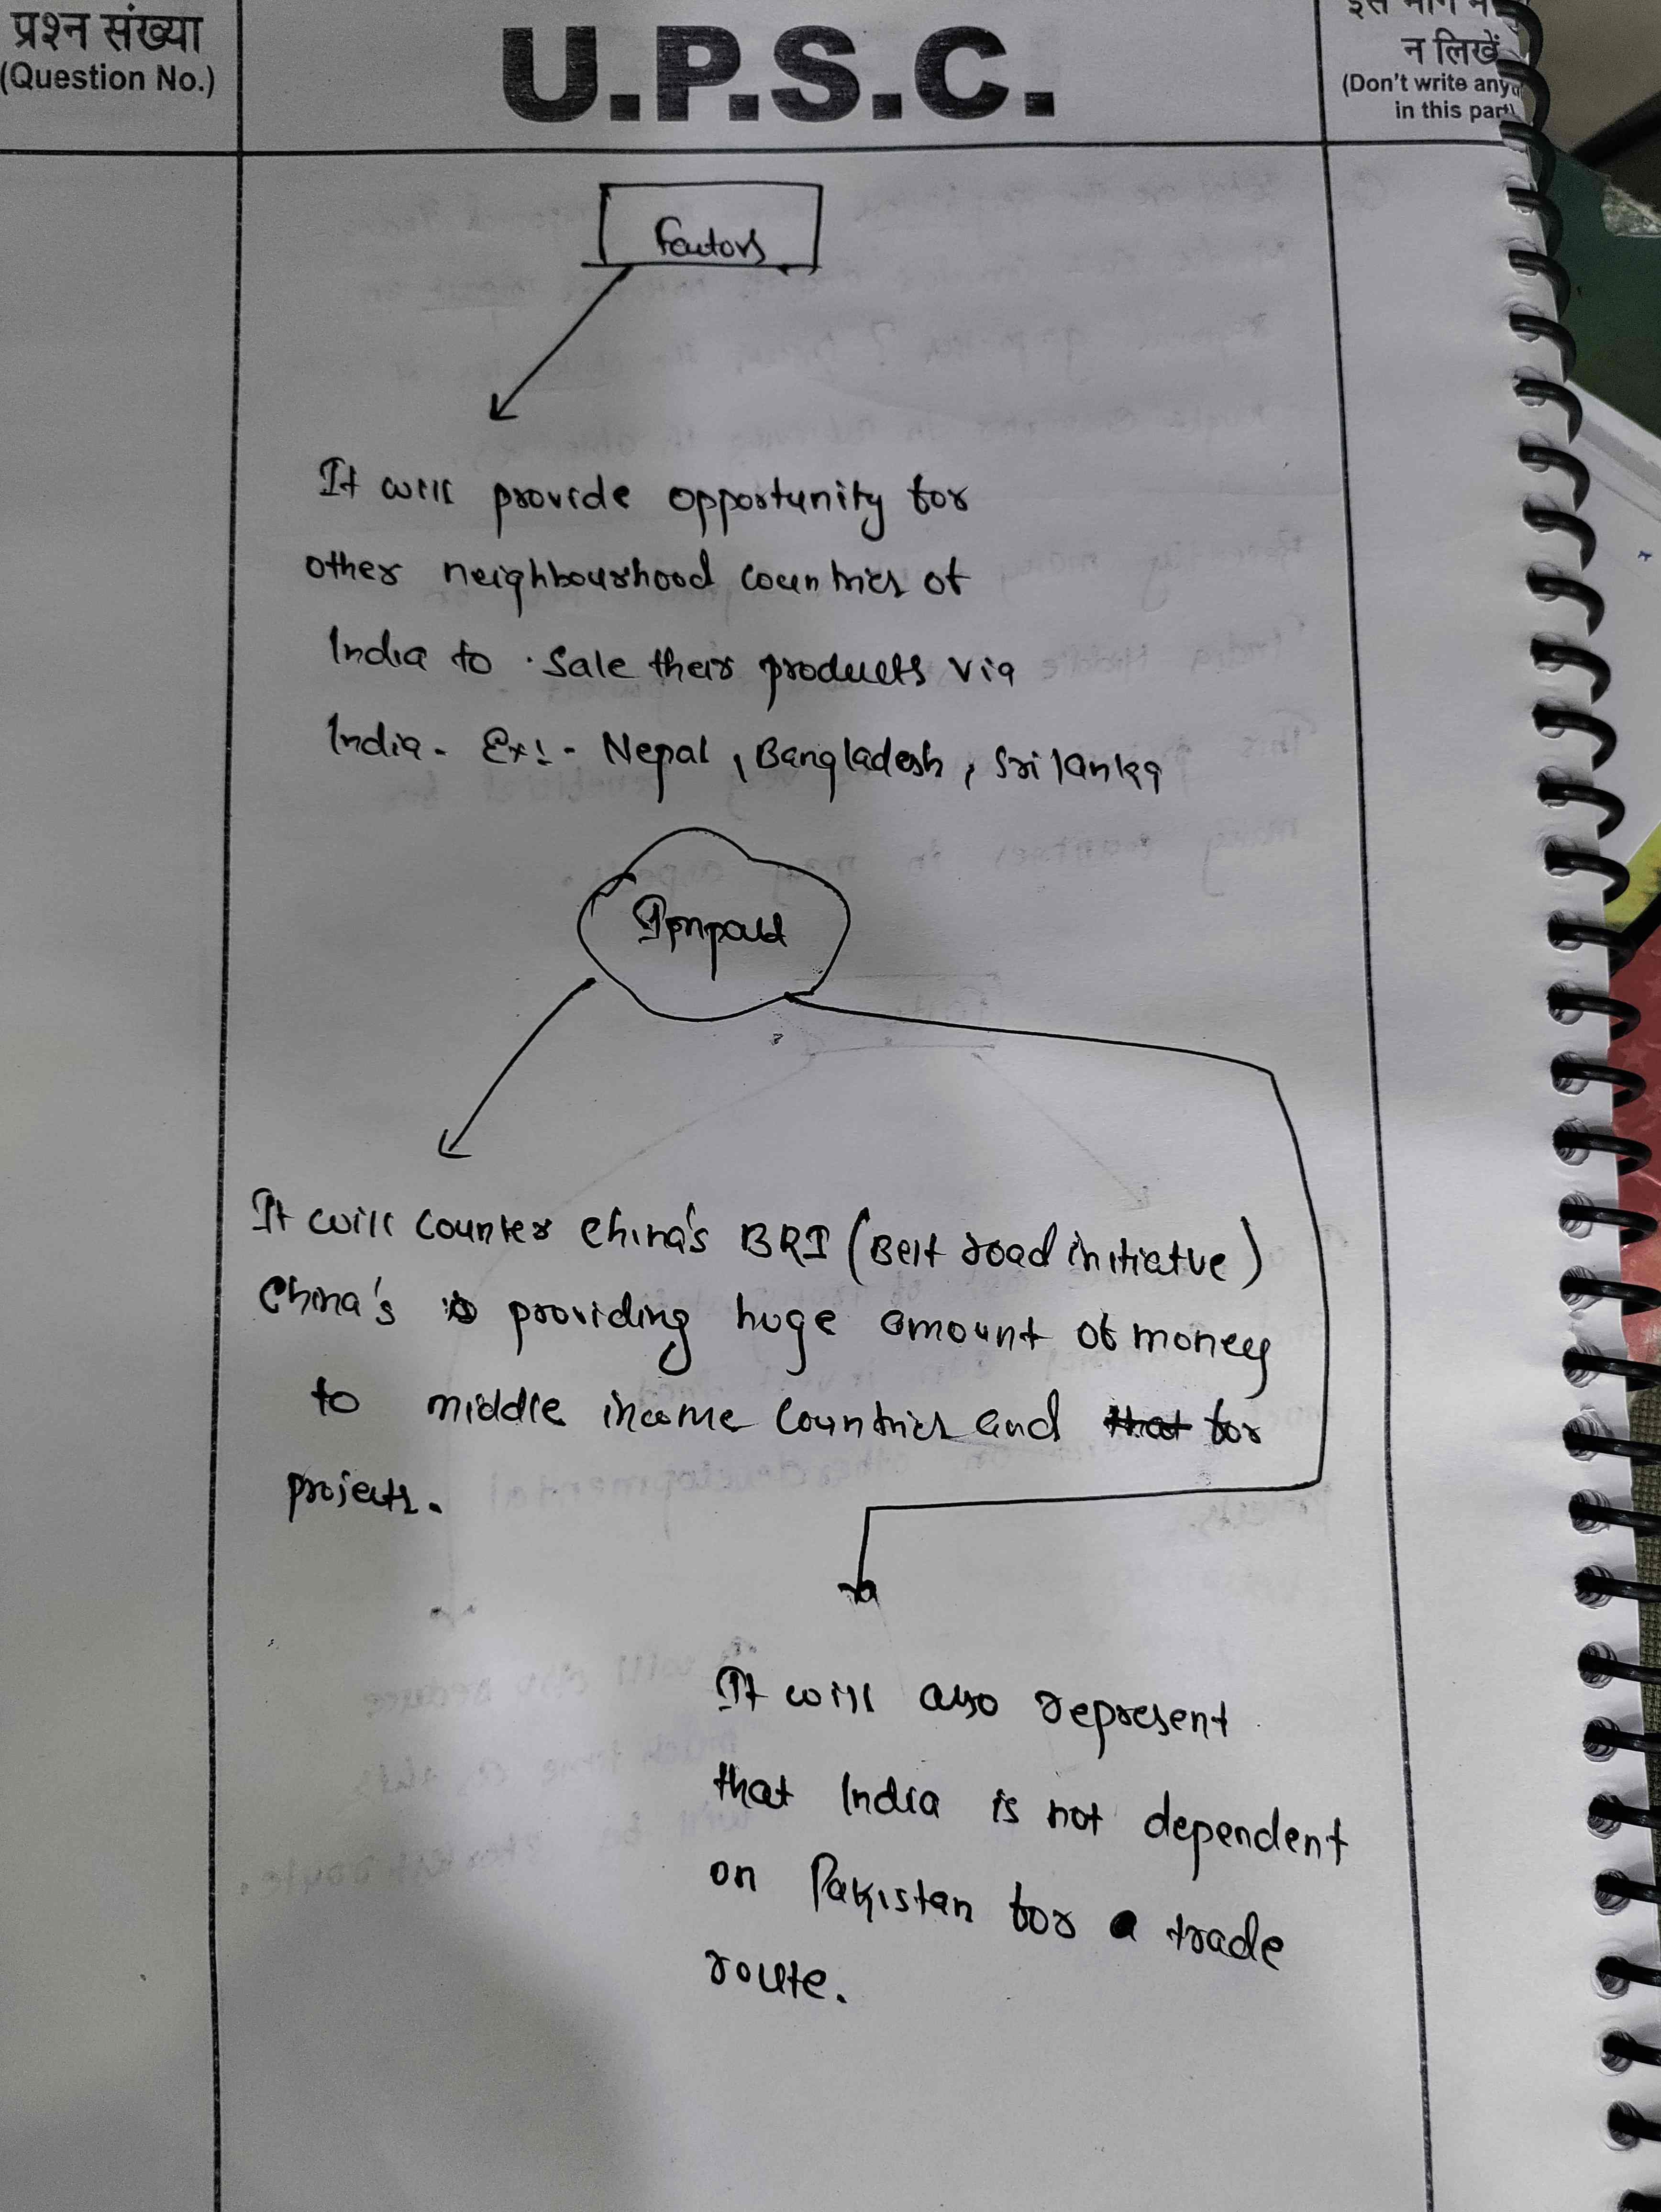 प्रश्न संख्या
(Question No.)
U.P.S.C.
न लिखें
(Don't write any
in this part)
Factors
It will provide opportunity for
other neighbourhood countries of
India to sale their products via
India. Ex:- Nepal, Bangladesh, Sri lanka
It will counter China's BRI (Belt road initiatve)
China's providing huge amount of money
to middle income countries and that for
projects.
It will also represent
that India is not dependent
on Pakistan for a trade
route.